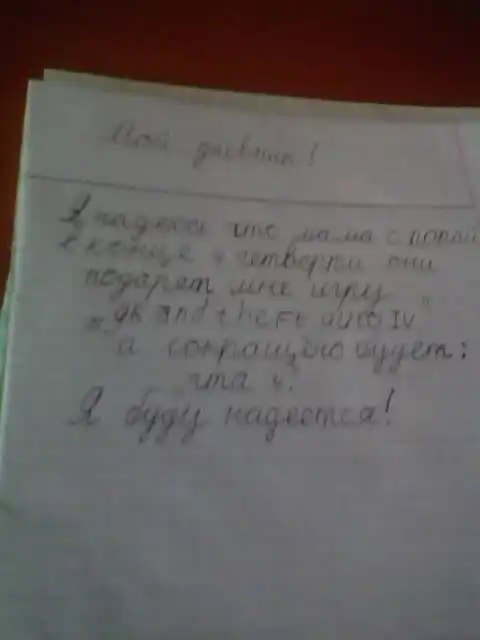 Мой дневник!
Я надеюсь что мама с папай
в конце 4 четверти они
подарят мне игру
"grand theft auto IV"
а сокращёно будет:
гта 4.
Я буду надеется!